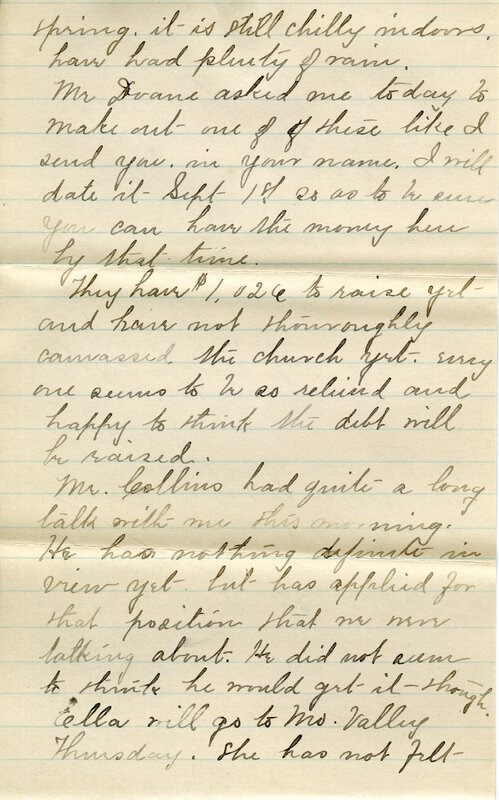 spring. it is still chilly indoors.
have had plenty of rain.
Mr Doane asked me today to
make out one of of these like I
send you. in your name. I will
date it Sept 1st so as to be sure
you can have the money here
by that time.
They have $1,026 to raise yet
and have not thouroughly
canvassed the church yet. every
one seems to be so reliend and
happy to think the debt will
be raised.
Mr. Collins had quite a long
talk with me this morning.
He has nothing definite in
view yet but has applied for
that position that we were
talking about. He did not seem
to think he would get it though.
Ella will go to Mo. Valley
Thursday. She has not felt